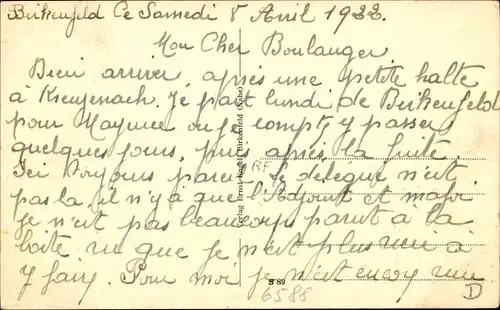 Birkenfeld Ce Samedi 8 Avril 1922.
Mon Cher Boulanger
Bien arriver, après une petite halte
à Kreujenach. Je part lundi de Birkenfeld
pour Mayence ou je compt y passer
quelques jours, puis après la suite
Ici toujours pareil le délegué n'est
pas la, il n'y a que l'Adjoint et moi
je n'est pas beaucoup parut a la
boite vu que je n'est plus rien à
y fair. Pour moi je n'est encor rien
Verlag Ernst Birkenfeld (Nahe)
RF
S 89
6588
D